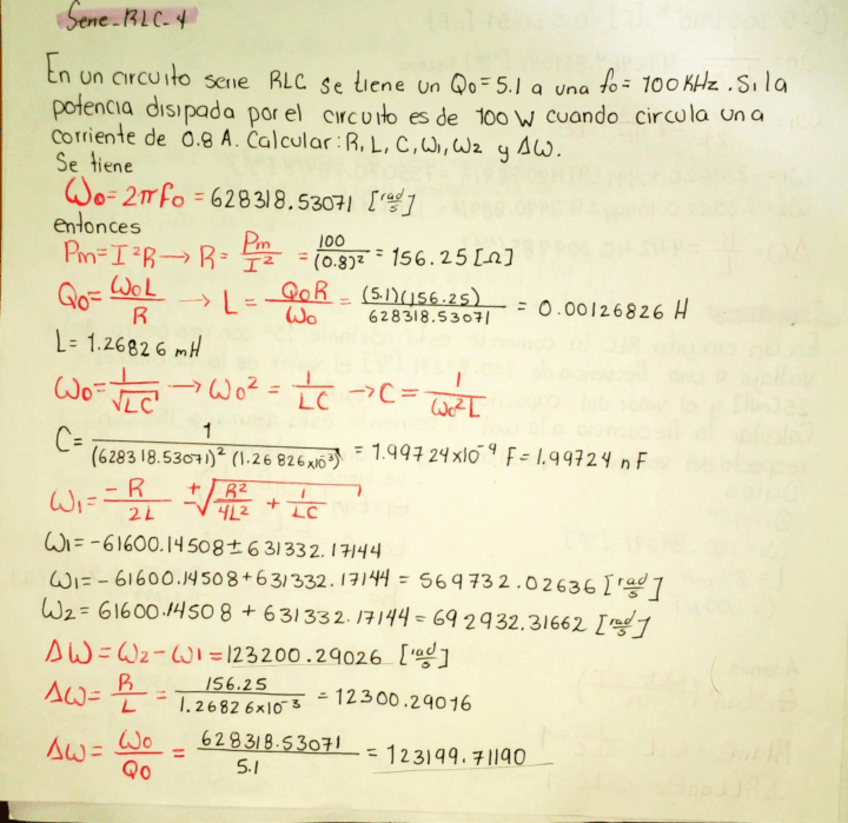 Serie-RLC-4
En un circuito serie RLC se tiene un Qo=5.1 a una fo= 100KHz. Si la
potencia disipada por el circuito es de 100 W cuando circula una
corriente de 0.8 A. Calcular: R, L, C, ω1, ω2 y Δω.
Se tiene
ωo=2πfo = 628318.53071 [rad/s]
entonces
Pm=I²R → R= Pm/I² = 100/(0.8)² = 156.25 [Ω]
Qo= ωoL/R → L= QoR/ωo = (5.1)(156.25)/628318.53071 = 0.00126826 H
L= 1.26826 mH
ωo= 1/√LC → ωo² = 1/LC → C = 1/ωo²L
C= 1/(628318.53071)² (1.26826x10⁻³) = 1.99724x10⁻⁹ F = 1.99724 nF
ω1= -R/2L ±√R²/4L² + 1/LC
ω1= -61600.14508 ± 631332.17144
ω1= -61600.14508+631332.17144 = 569732.02636 [rad/s]
ω2= 61600.14508 + 631332.17144 = 692932.31662 [rad/s]
Δω= ω2-ω1 = 123200.29026 [rad/s]
Δω= R/L = 156.25/1.26826x10⁻³ = 12300.29016
Δω= ωo/Qo = 628318.53071/5.1 = 123199.71190